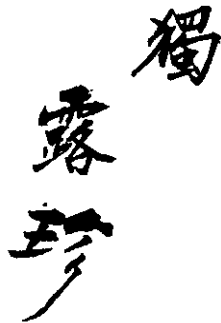 獨
露珍